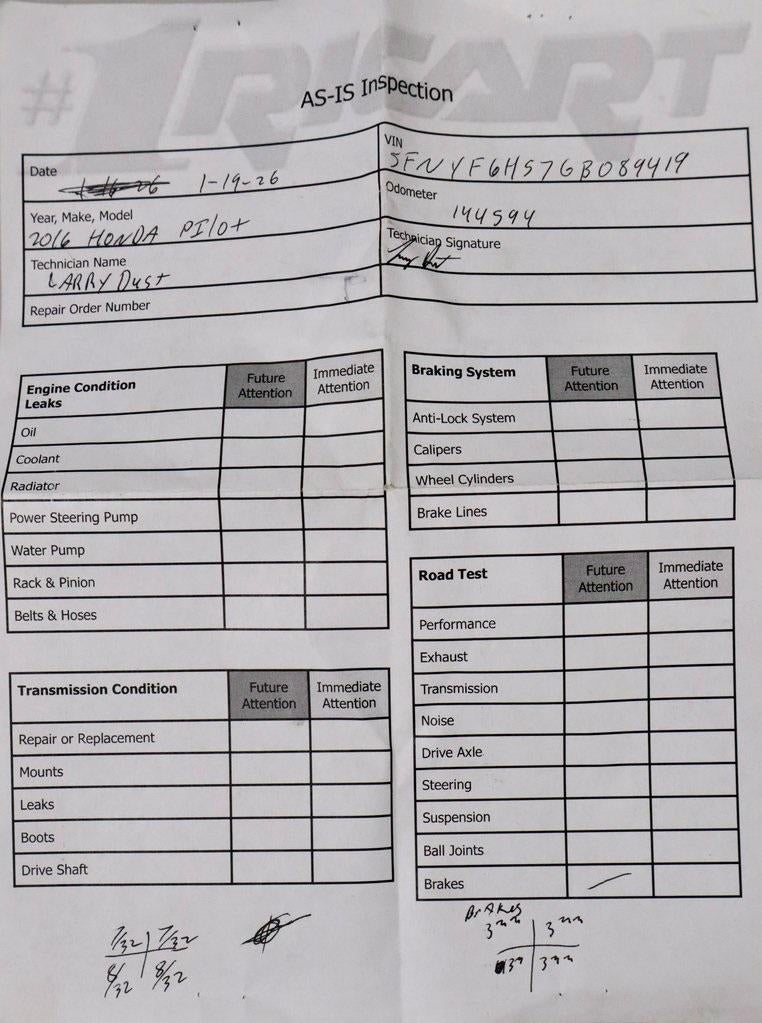 #1 RICART
AS-IS Inspection
Date 1-16-26 1-19-26
VIN 5FNYF6H57GB089419
Year, Make, Model 2016 HONDA PIlot
Odometer 144594
Technician Name LARRY Dust
Technician Signature
Repair Order Number
Engine Condition Leaks Future Attention Immediate Attention
Oil
Coolant
Radiator
Power Steering Pump
Water Pump
Rack & Pinion
Belts & Hoses
Braking System Future Attention Immediate Attention
Anti-Lock System
Calipers
Wheel Cylinders
Brake Lines
Transmission Condition Future Attention Immediate Attention
Repair or Replacement
Mounts
Leaks
Boots
Drive Shaft
Road Test Future Attention Immediate Attention
Performance
Exhaust
Transmission
Noise
Drive Axle
Steering
Suspension
Ball Joints
Brakes
7/32 7/32
8/32 8/32
BrAkes
3mm 3mm
3m 3mm